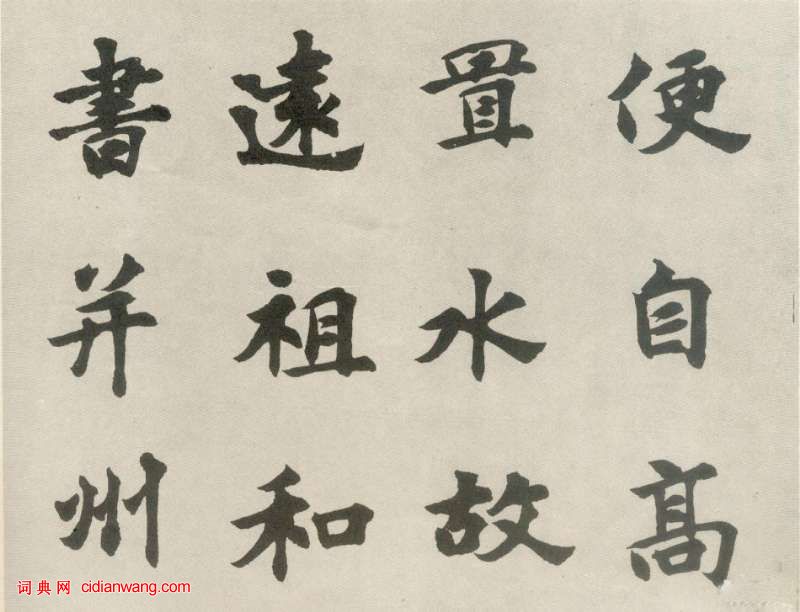 便自高
置水故
遠祖和
書并州
词典网 cidianwang.com